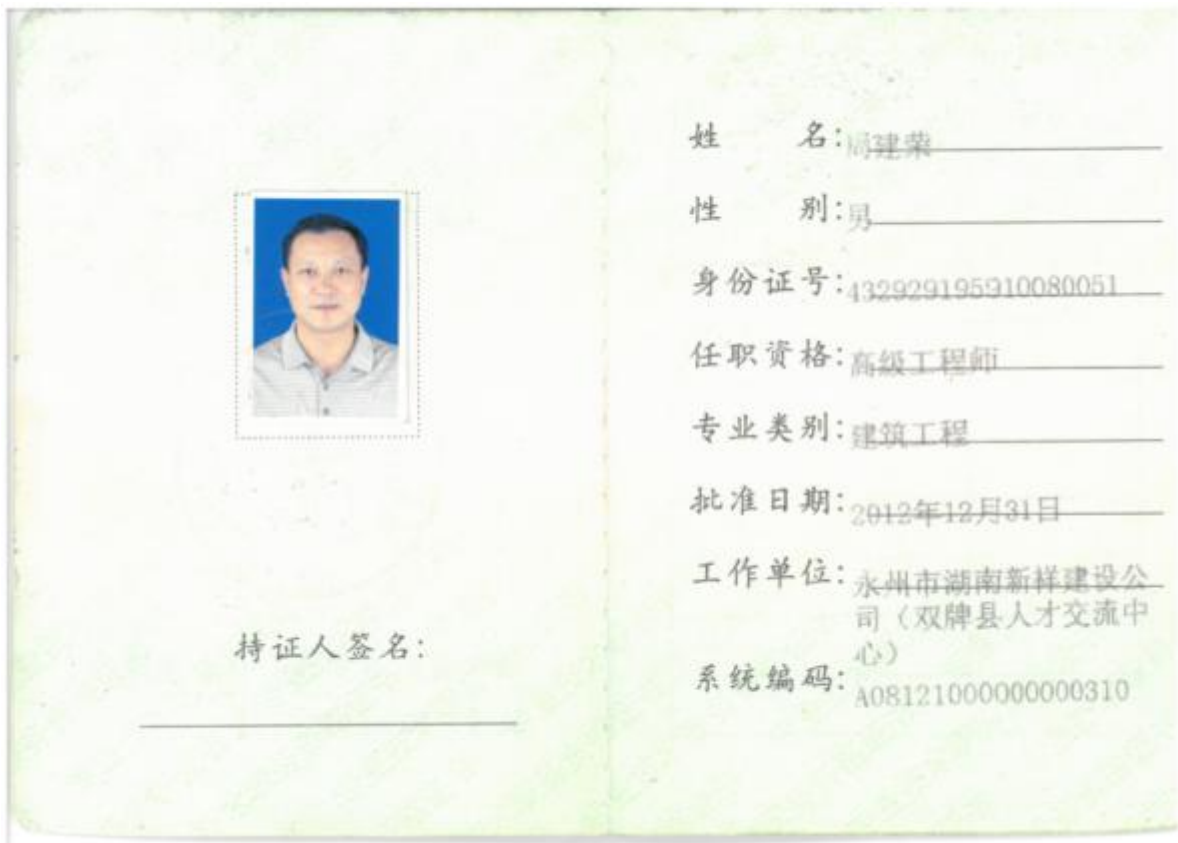 持证人签名:
姓 名:周建荣
性 别:男
身份证号:432929195910080051
任职资格:高级工程师
专业类别:建筑工程
批准日期:2012年12月31日
工作单位:永州市湖南新祥建设公
司（双牌县人才交流中
心）
系统编码:A08121000000000310